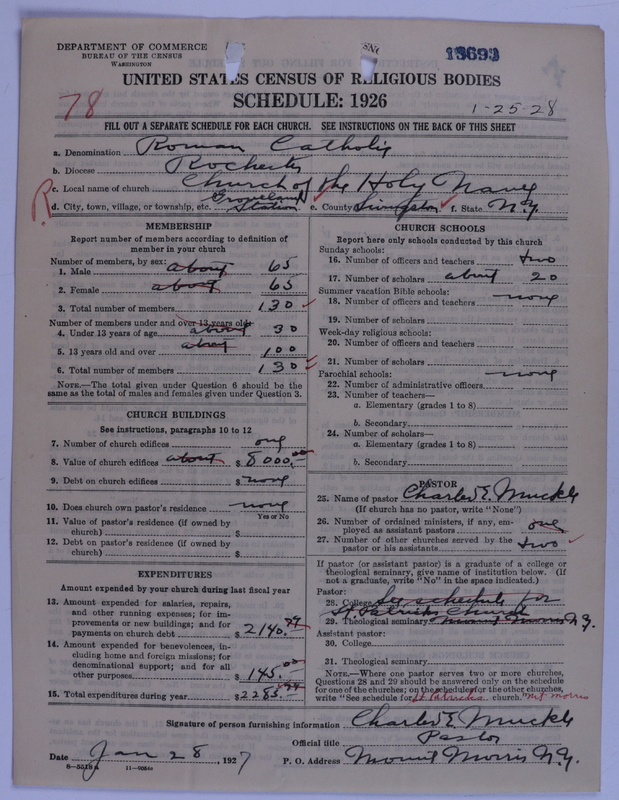 DEPARTMENT OF COMMERCE
BUREAU OF THE CENSUS
WASHINGTON
13693
UNITED STATES CENSUS OF RELIGIOUS BODIES
SCHEDULE: 1926
78
1-25-28
FILL OUT A SEPARATE SCHEDULE FOR EACH CHURCH. SEE INSTRUCTIONS ON THE BACK OF THIS SHEET
a. Denomination Roman Catholic
b. Diocese Rochester
c. Local name of church Church of the Holy Name
d. City, town, village, or township, etc. Groveland Station e. County Livingston f. State N.Y.
MEMBERSHIP
Report number of members according to definition of
member in your church
Number of members, by sex:
1. Male about 65
2. Female about 65
3. Total number of members 130
Number of members under and over 13 years old:
4. Under 13 years of age about 30
5. 13 years old and over about 100
6. Total number of members 130
NOTE.—The total given under Question 6 should be the
same as the total of males and females given under Question 3.
CHURCH BUILDINGS
See instructions, paragraphs 10 to 12
7. Number of church edifices one
8. Value of church edifices about $ 8000.00
9. Debt on church edifices $ none
10. Does church own pastor's residence none
Yes or No
11. Value of pastor's residence (if owned by
church) $
12. Debt on pastor's residence (if owned by
church) $
EXPENDITURES
Amount expended by your church during last fiscal year
13. Amount expended for salaries, repairs,
and other running expenses; for im-
provements or new buildings; and for
payments on church debt $ 2140.
14. Amount expended for benevolences, in-
cluding home and foreign missions; for
denominational support; and for all
other purposes $ 145.00
15. Total expenditures during year $ 2285.
CHURCH SCHOOLS
Report here only schools conducted by this church
Sunday schools:
16. Number of officers and teachers two
17. Number of scholars about 20
Summer vacation Bible schools:
18. Number of officers and teachers none
19. Number of scholars
Week-day religious schools:
20. Number of officers and teachers
21. Number of scholars
Parochial schools: none
22. Number of administrative officers
23. Number of teachers—
a. Elementary (grades 1 to 8)
b. Secondary
24. Number of scholars—
a. Elementary (grades 1 to 8)
b. Secondary
PASTOR
25. Name of pastor Charles E. Muckle
(If church has no pastor, write "None")
26. Number of ordained ministers, if any, em-
ployed as assistant pastors one
27. Number of other churches served by the
pastor or his assistants two
If pastor (or assistant pastor) is a graduate of a college or
theological seminary, give name of institution below. (If
not a graduate, write "No" in the space indicated.)
Pastor:
28. College See schedule for
St Patricks Church
29. Theological seminary Mount Morris N.Y.
Assistant pastor:
30. College
31. Theological seminary
NOTE.—Where one pastor serves two or more churches,
Questions 28 and 29 should be answered only on the schedule
for one of the churches; on the schedules for the other churches,
write "See schedule for St Patricks church." Mt Morris
Signature of person furnishing information Charles E. Muckle
Official title Pastor
Date Jan 28, 1927 P. O. Address Mount Morris N.Y.
8—5518 a 11—9054